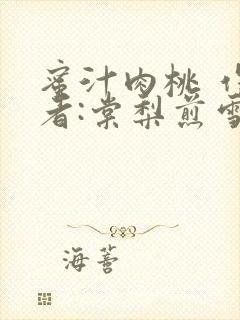 蜜汁肉桃 作
者:棠梨煎雪
海